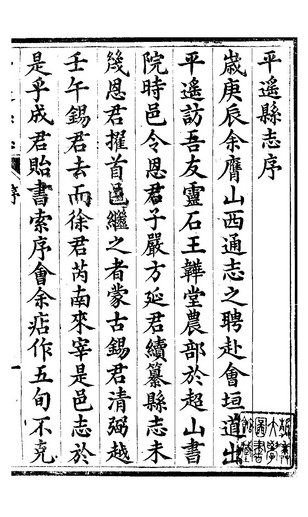 平遙縣志序
嵗庚辰余膺山西通志之聘赴會垣道出
平遙訪吾友靈石王韡堂農部於超山書
院時邑令恩君子嚴方延君續纂縣志未
幾恩君擢首邑繼之者蒙古錫君清弼越
壬午錫君去而徐君芮南來宰是邑志於
是乎成君貽書索序會余痁作五旬不克
序
一